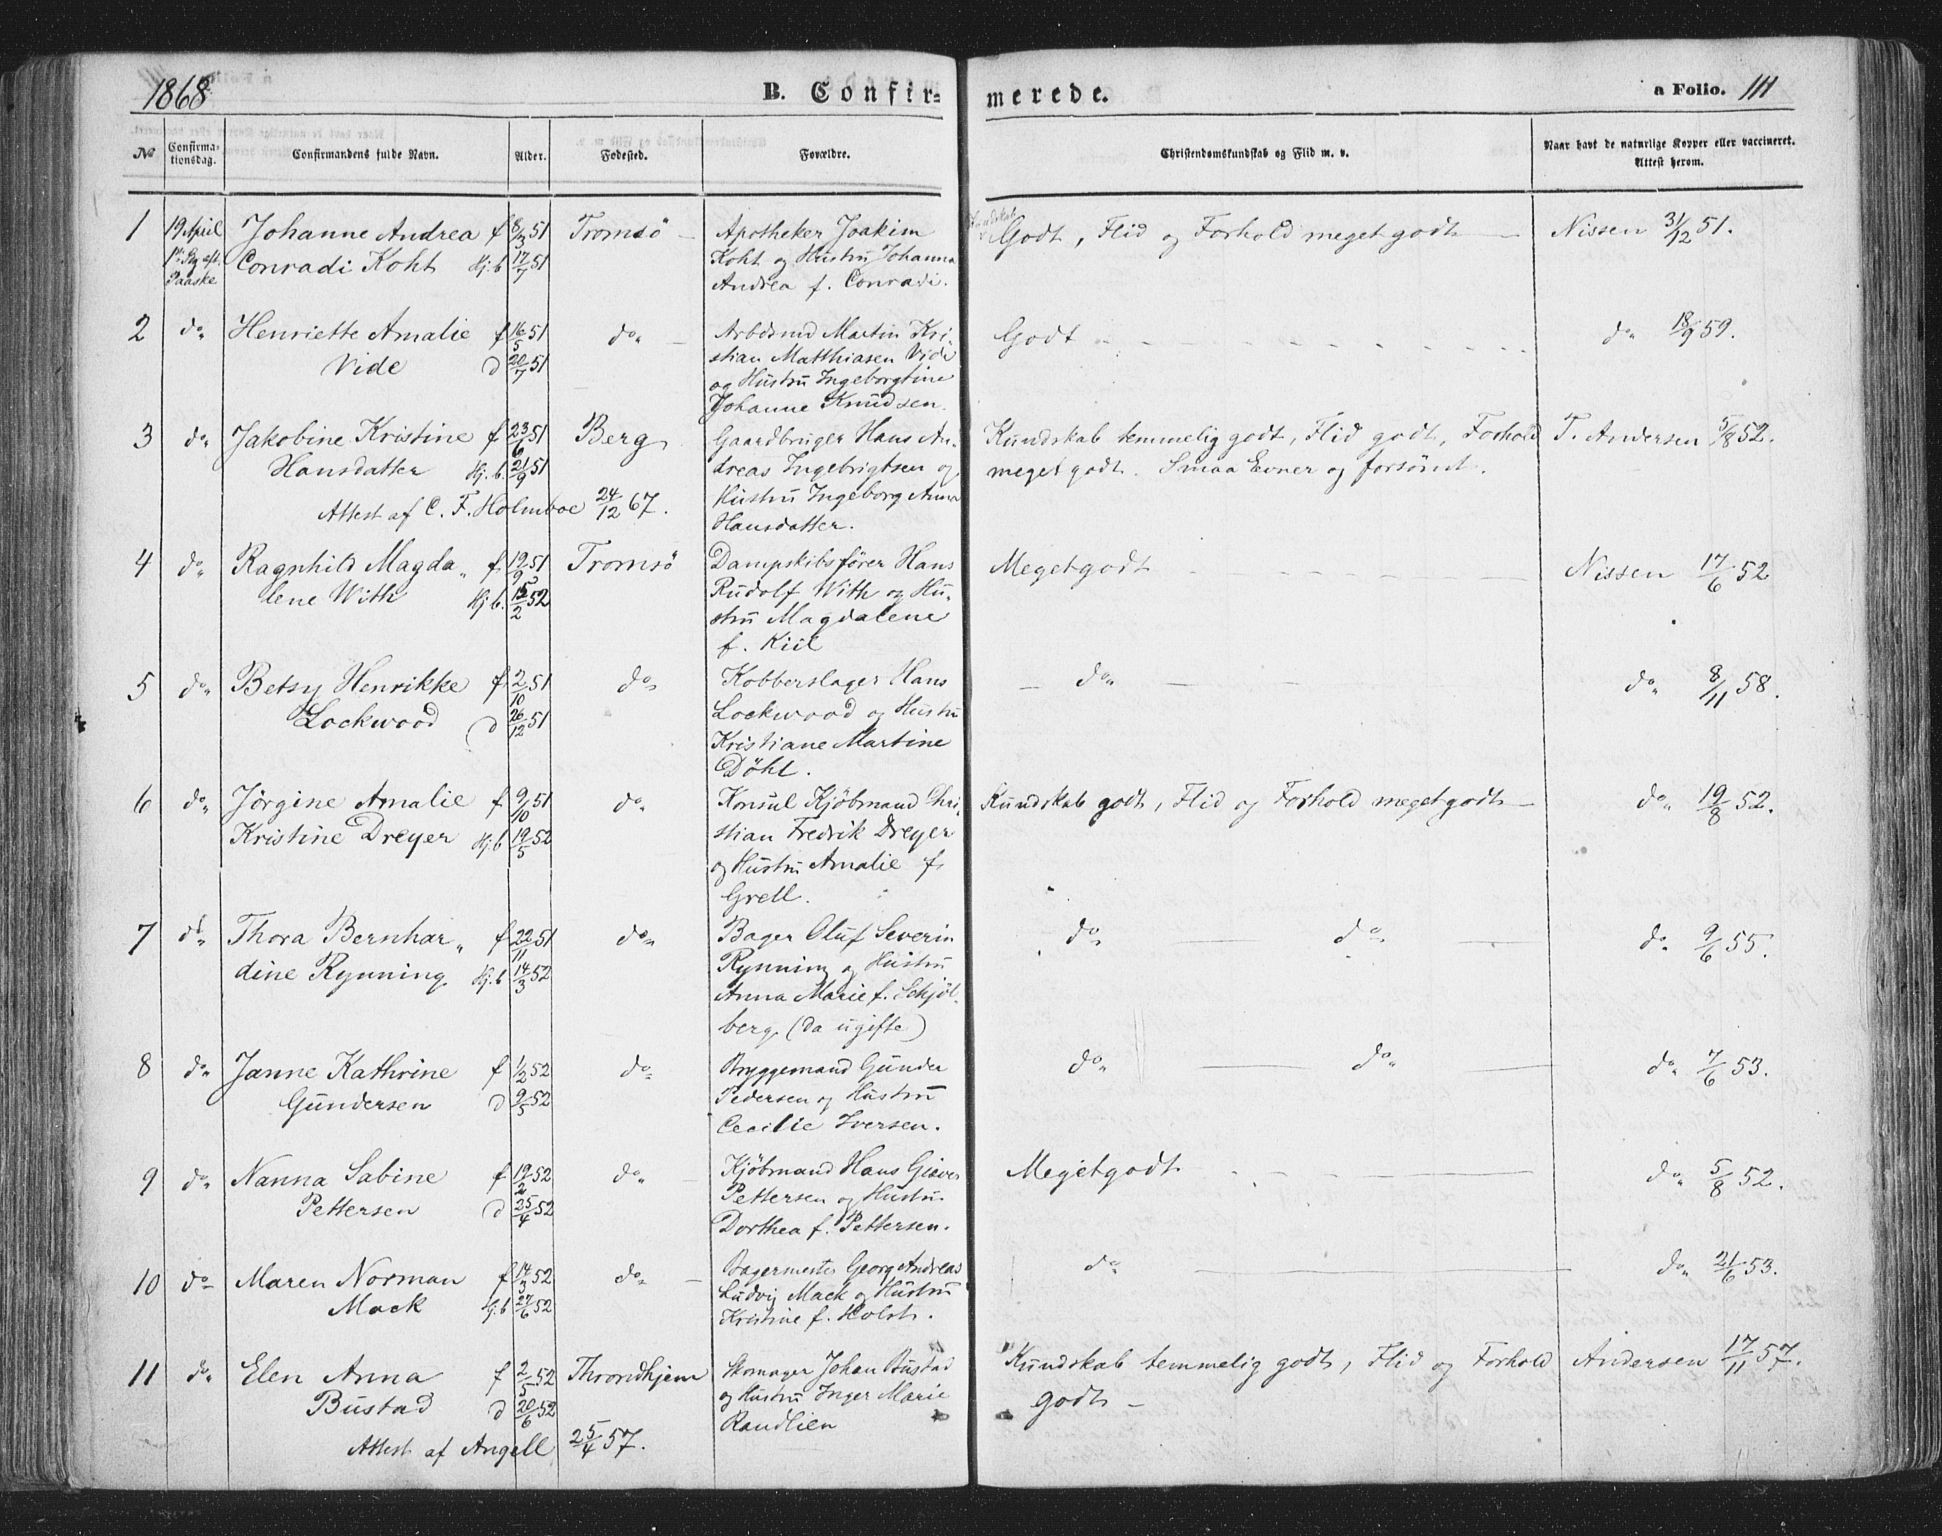 1868
B. Confir-
merede.
a Folio. 111
No
Confirma-
tionsdag.
Confirmandens fulde Navn.
Alder.
Fødested.
Forældre.
Christendomskundskab og Flid m. v.
Naar havt de naturlige Kopper eller vaccineret.
Attest herom.
1 19 April Johanne Andrea f 8/3 51 Tromsö - Apotheker Joakim Kundskab Godt, Flid og Forhold meget godt - Nissen 31/12 51.
1st Sg eft. Conradi Koht Hj. b 17/7 51 Koht og Hustru Johanna
Paaske Andrea f. Conradi.
2 do Henriette Amalie f 16/5 51 do - Arbdsmd Martin Kri- Godt do 18/9 59.
Vide d 20/7 51 stian Matthiasen Vide
og Hustru Ingeborgtine
Johanne Knudsen.
3 do Jakobine Kristine f 23/6 51 Berg Gaardbruger Hans An- Kundskab temmelig godt, Flid godt, Forhold T. Andersen 5/8 52.
Hansdatter Hj. b. 21/9 51 dreas Ingebrigtsen og meget godt. Smaa Evner og forsömt.
Attest af C. F. Holmboe 24/12 67. Hustru Ingeborg Anna
Hansdatter.
4 do Ragnhild Magda- f. 19/9 51 Tromsö Dampskibsförer Hans Megetgodt Nissen 17/6 52
lene With Hj. b. 15/2 52 Rudolf With og Hu-
stru Magdalene
f. Kiil
5 do Betsy Henrikke f 2/10 51 do Kobberslager Hans - do do 8/11 58.
Lockwood d 26/12 51 Lockwood og Hustru
Kristiane Martine
Döht.
6 do Jörgine Amalie f 9/10 51 do Konsul Kjöbmand Chri- Kundskab godt, Flid og Forhold megetgodt - do 19/8 52.
Kristine Dreyer Hj. b 19/5 52 stian Fredrik Dreyer
og Hustru Amalie f.
Grell.
7 do Thora Bernhar- f 22/11 51 do Bager Oluf Severin do do do 9/6 55.
dine Rynning Hj. b 14/3 52 Rynning og Hustru
Anna Marie f. Schjöl-
berg. (da ugifte)
8 do Janne Kathrine f 1/2 52 do Bryggemand Gunder do do do 7/6 53.
Gundersen d 9/5 52 Pedersen og Hustru
Cecilie Iversen.
9 do Nanna Sabine f 19/2 52 do - Kjöbmand Hans Giæver Megetgodt do 5/8 52.
Pettersen d 25/4 52 Pettersen og Hustru
Dorthea f. Pettersen.
10 do Maren Norman f 14/3 52 do - Bagermester Georg Andreas do do 21/6 53.
Mack Hj. b 27/6 52 Ludvig Mack og Hustru
Kristine f. Holst.
11 do Elen Anna f 2/5 52 Throndhjem Skomager Johan Bustad Kundskab temmelig godt, Flid og Forhold Andersen 17/11 57.
Bustad d 20/6 52 og Hustru Inger Marie godt -
Attest af Angell 25/4 57. Randlien